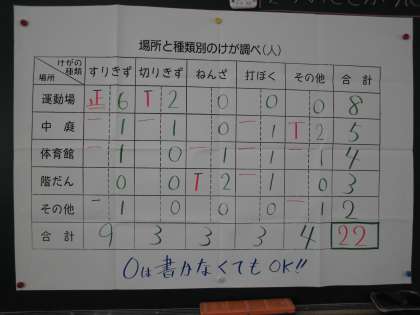 場所と種類別のけが調べ(人)
けがの種類 場所 すりきず 切りきず ねんざ 打ぼく その他 合計
運動場 正一 6 T 2 0 0 0 8
中庭 一 1 一 1 0 一 1 T 2 5
体育館 一 1 0 一 1 一 1 一 1 4
階だん 0 0 T 2 一 1 0 3
その他 一 1 0 0 0 一 1 2
合計 9 3 3 3 4 22
0は書かなくてもOK!!